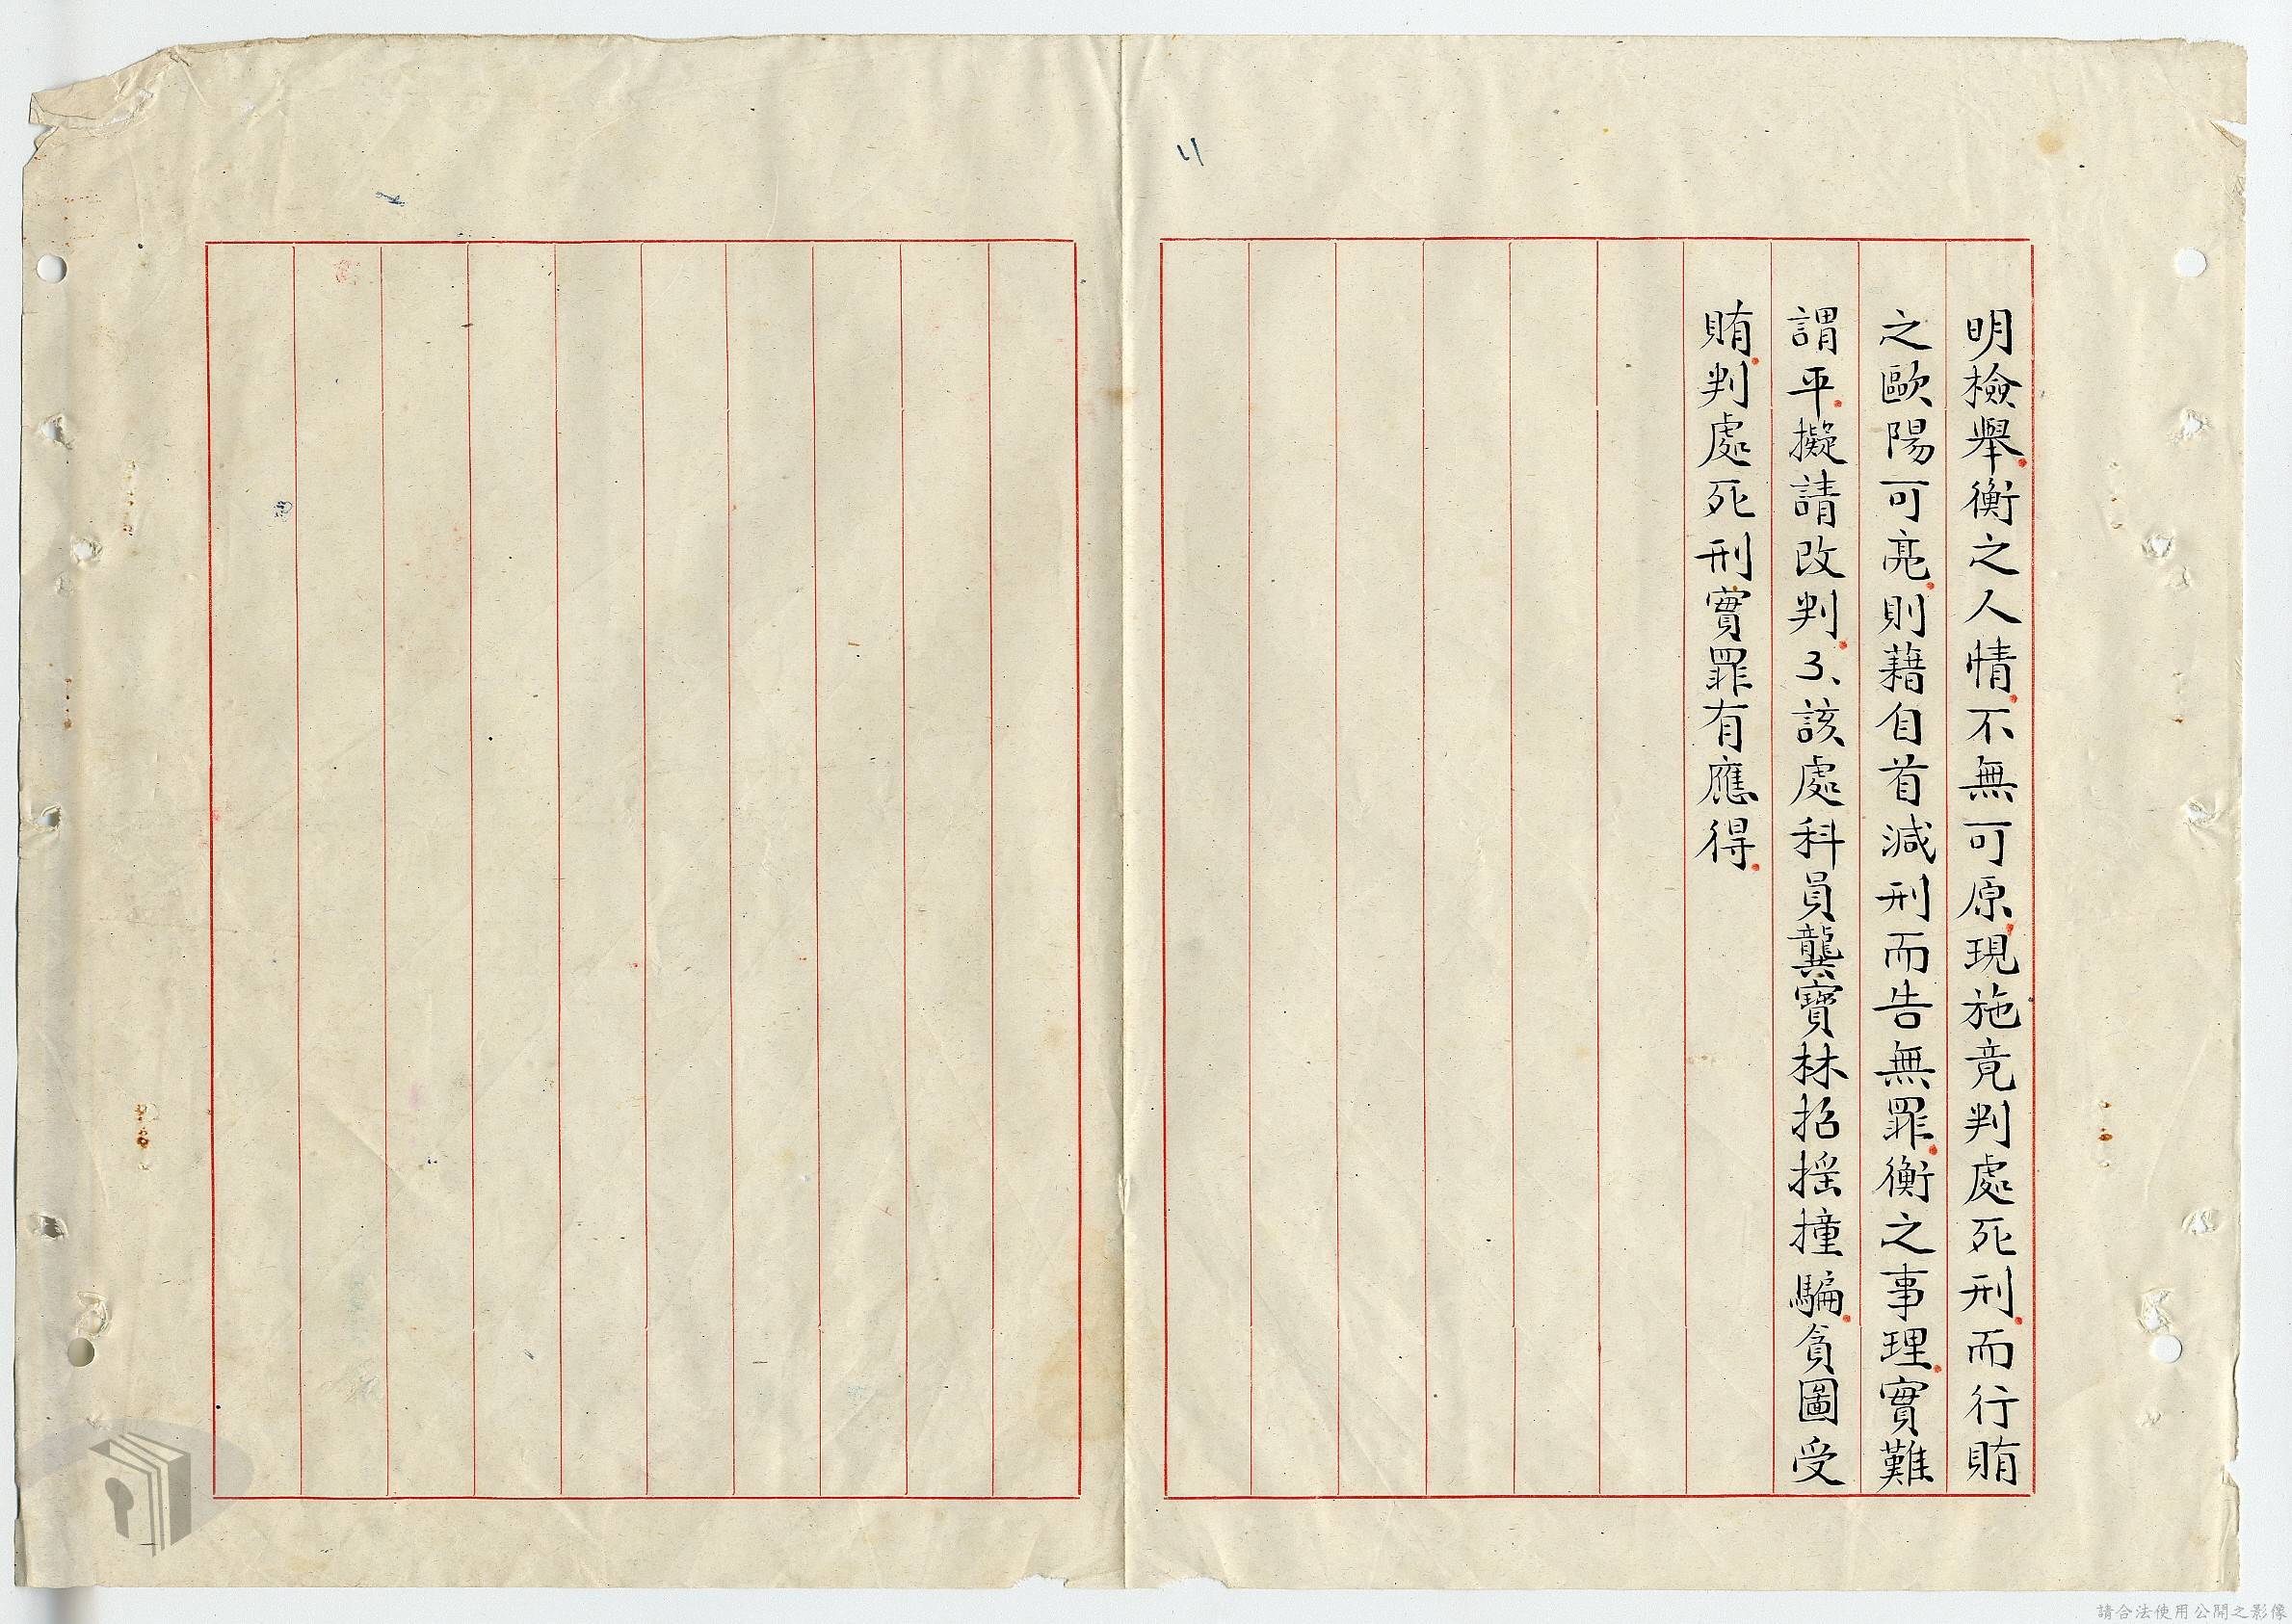 11
明檢舉衡之人情不無可原現施竟判處死刑而行賄
之歐陽可亮則藉自首減刑而告無罪衡之事理實難
謂平擬請改判3、該處科員龔寶林招摇撞騙貪圖受
賄判處死刑實罪有應得
請合法使用公開之影像